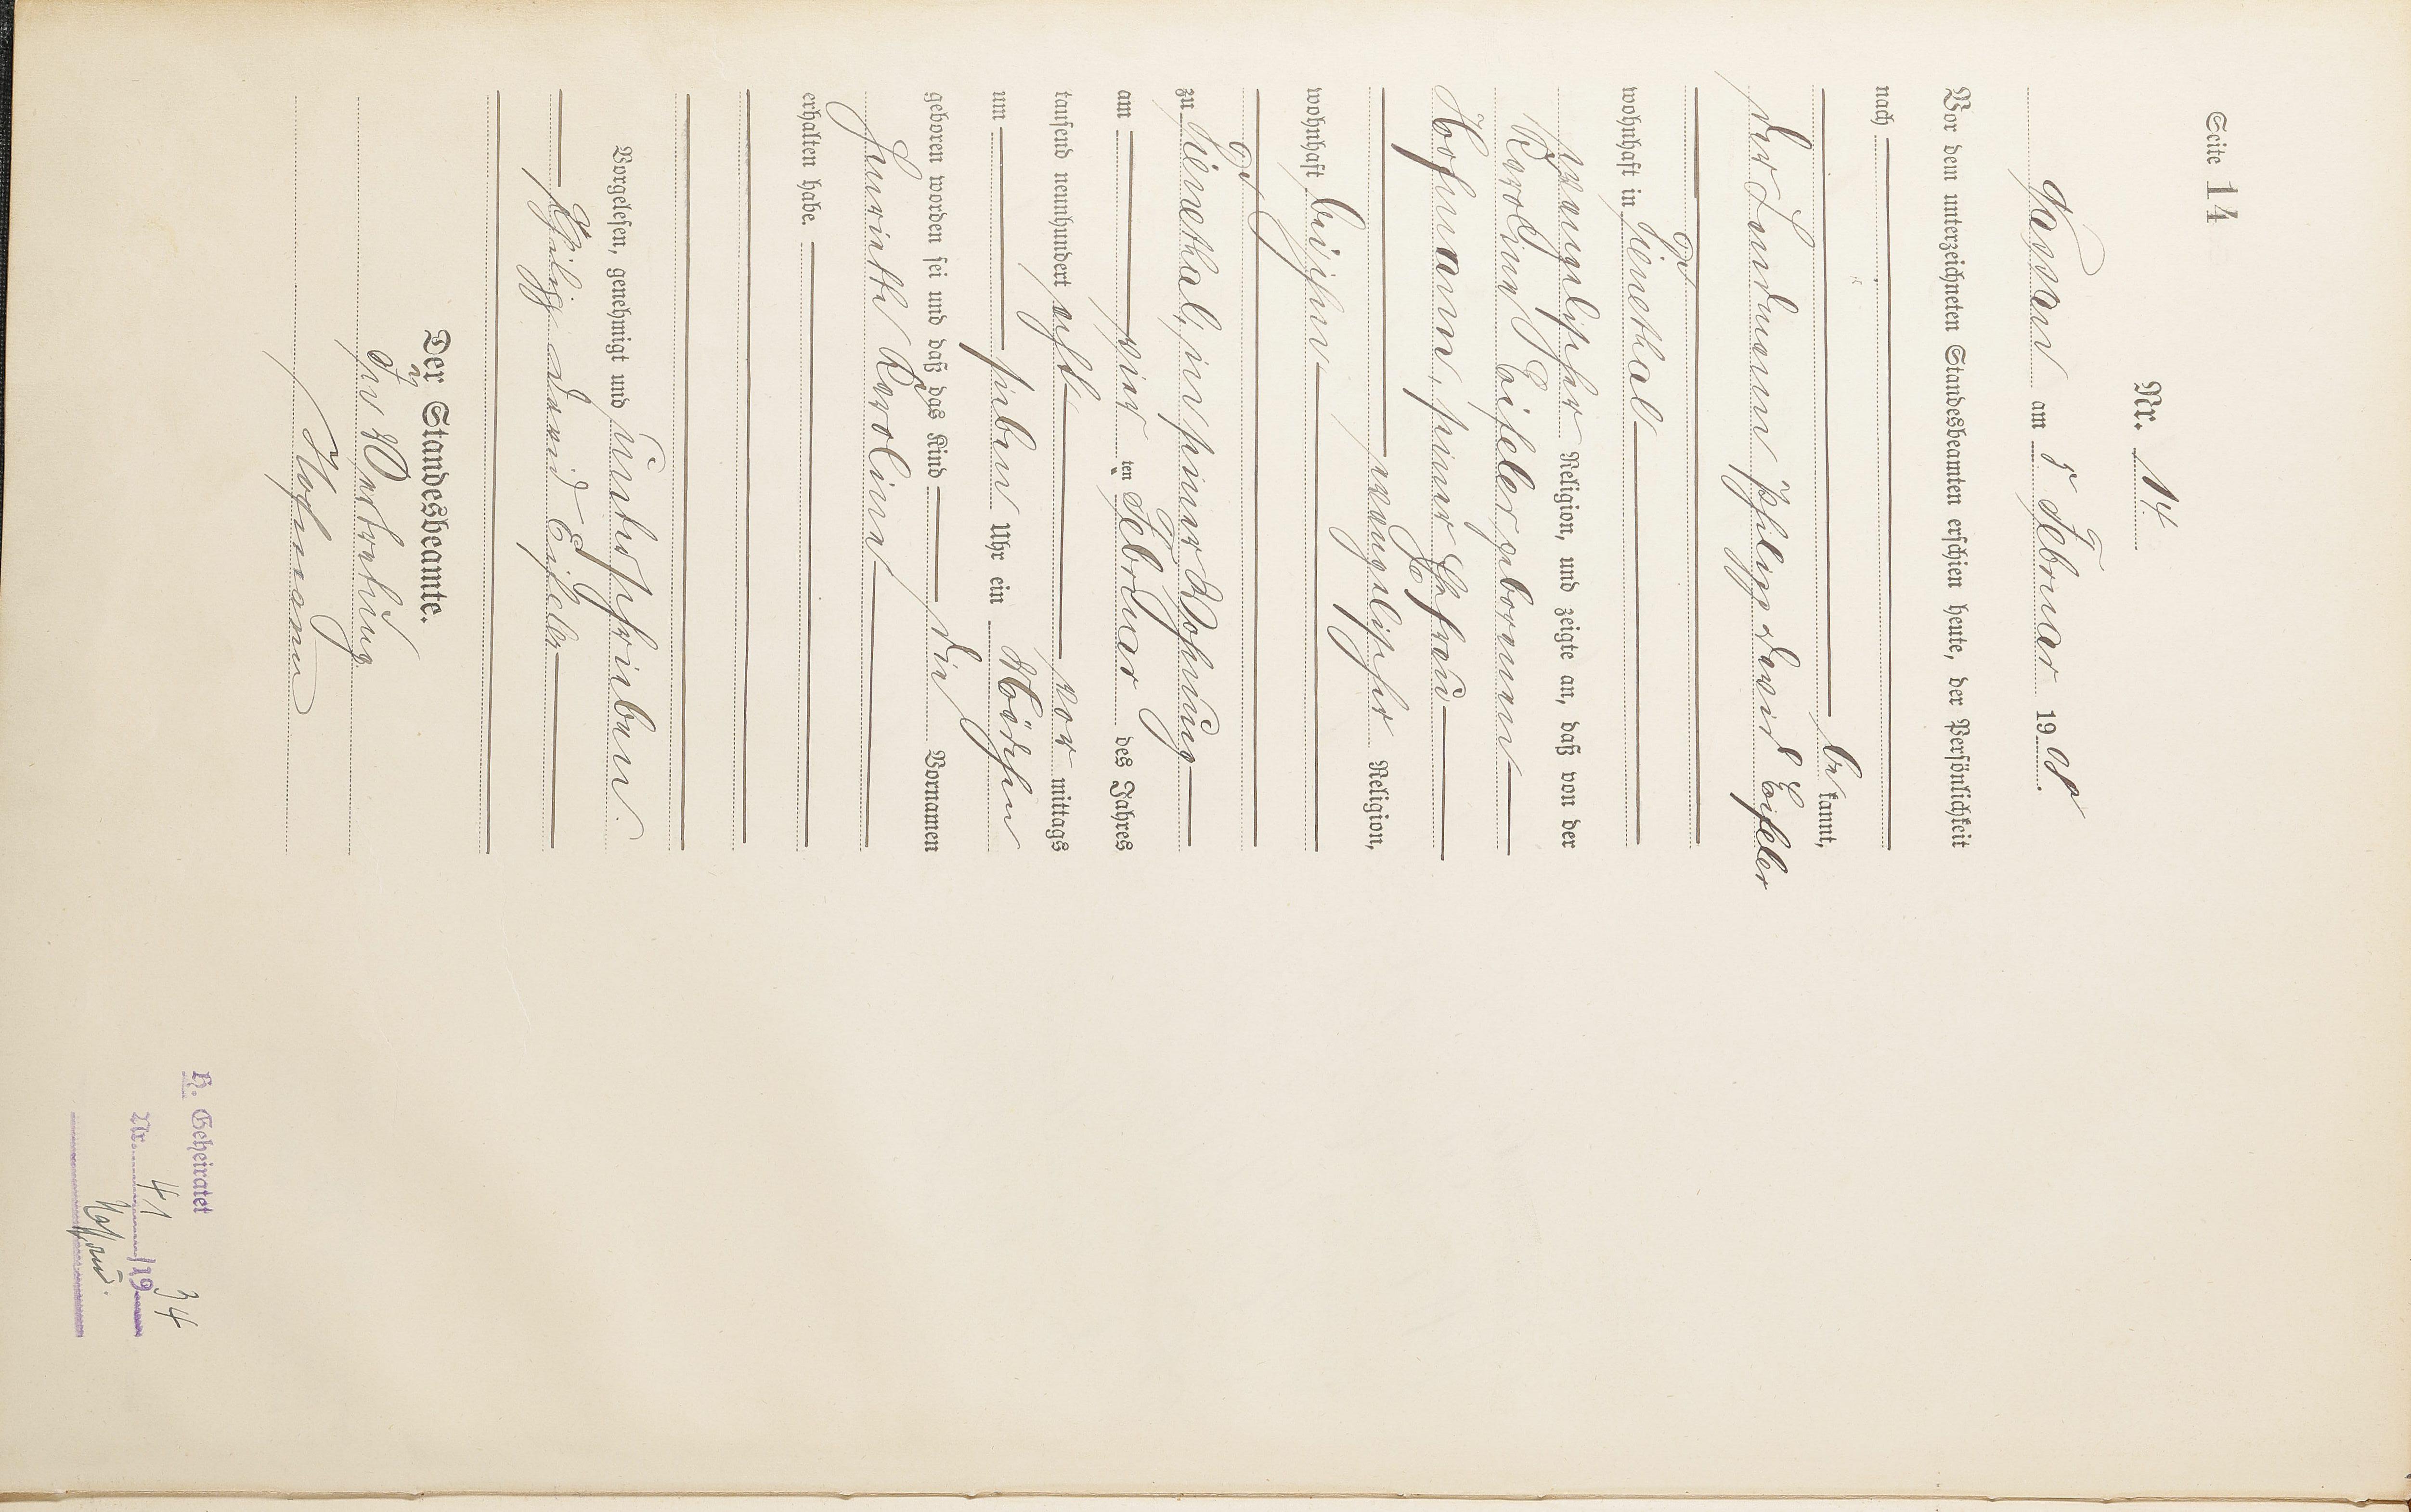 Seite 14
Nr. 14
Nassau am 5 Februar 1908.
Vor dem unterzeichneten Standesbeamten erschien heute, der Persönlichkeit
nach
bekannt,
der Landmann Philipp David Eiseler
wohnhaft in Hienethal
evangelischer Religion, und zeigte an, daß von der
Karoline Eiseler geborenen
Hofmann, seiner Ehefrau
evangelischer Religion,
wohnhaft bei ihm
zu Hienethal, in seiner Wohnung
am vier ten Februar des Jahres
tausend neunhundert acht vor mittags
um sieben Uhr ein Mädchen
geboren worden sei und daß das Kind die Vornamen
Henriette Karoline
erhalten habe.
Vorgelesen, genehmigt und unterschrieben.
Philipp David Eiseler
Der Standesbeamte.
In Vertretung
Hofmann
H. Geheiratet
Nr. 41/1934
Nassau.